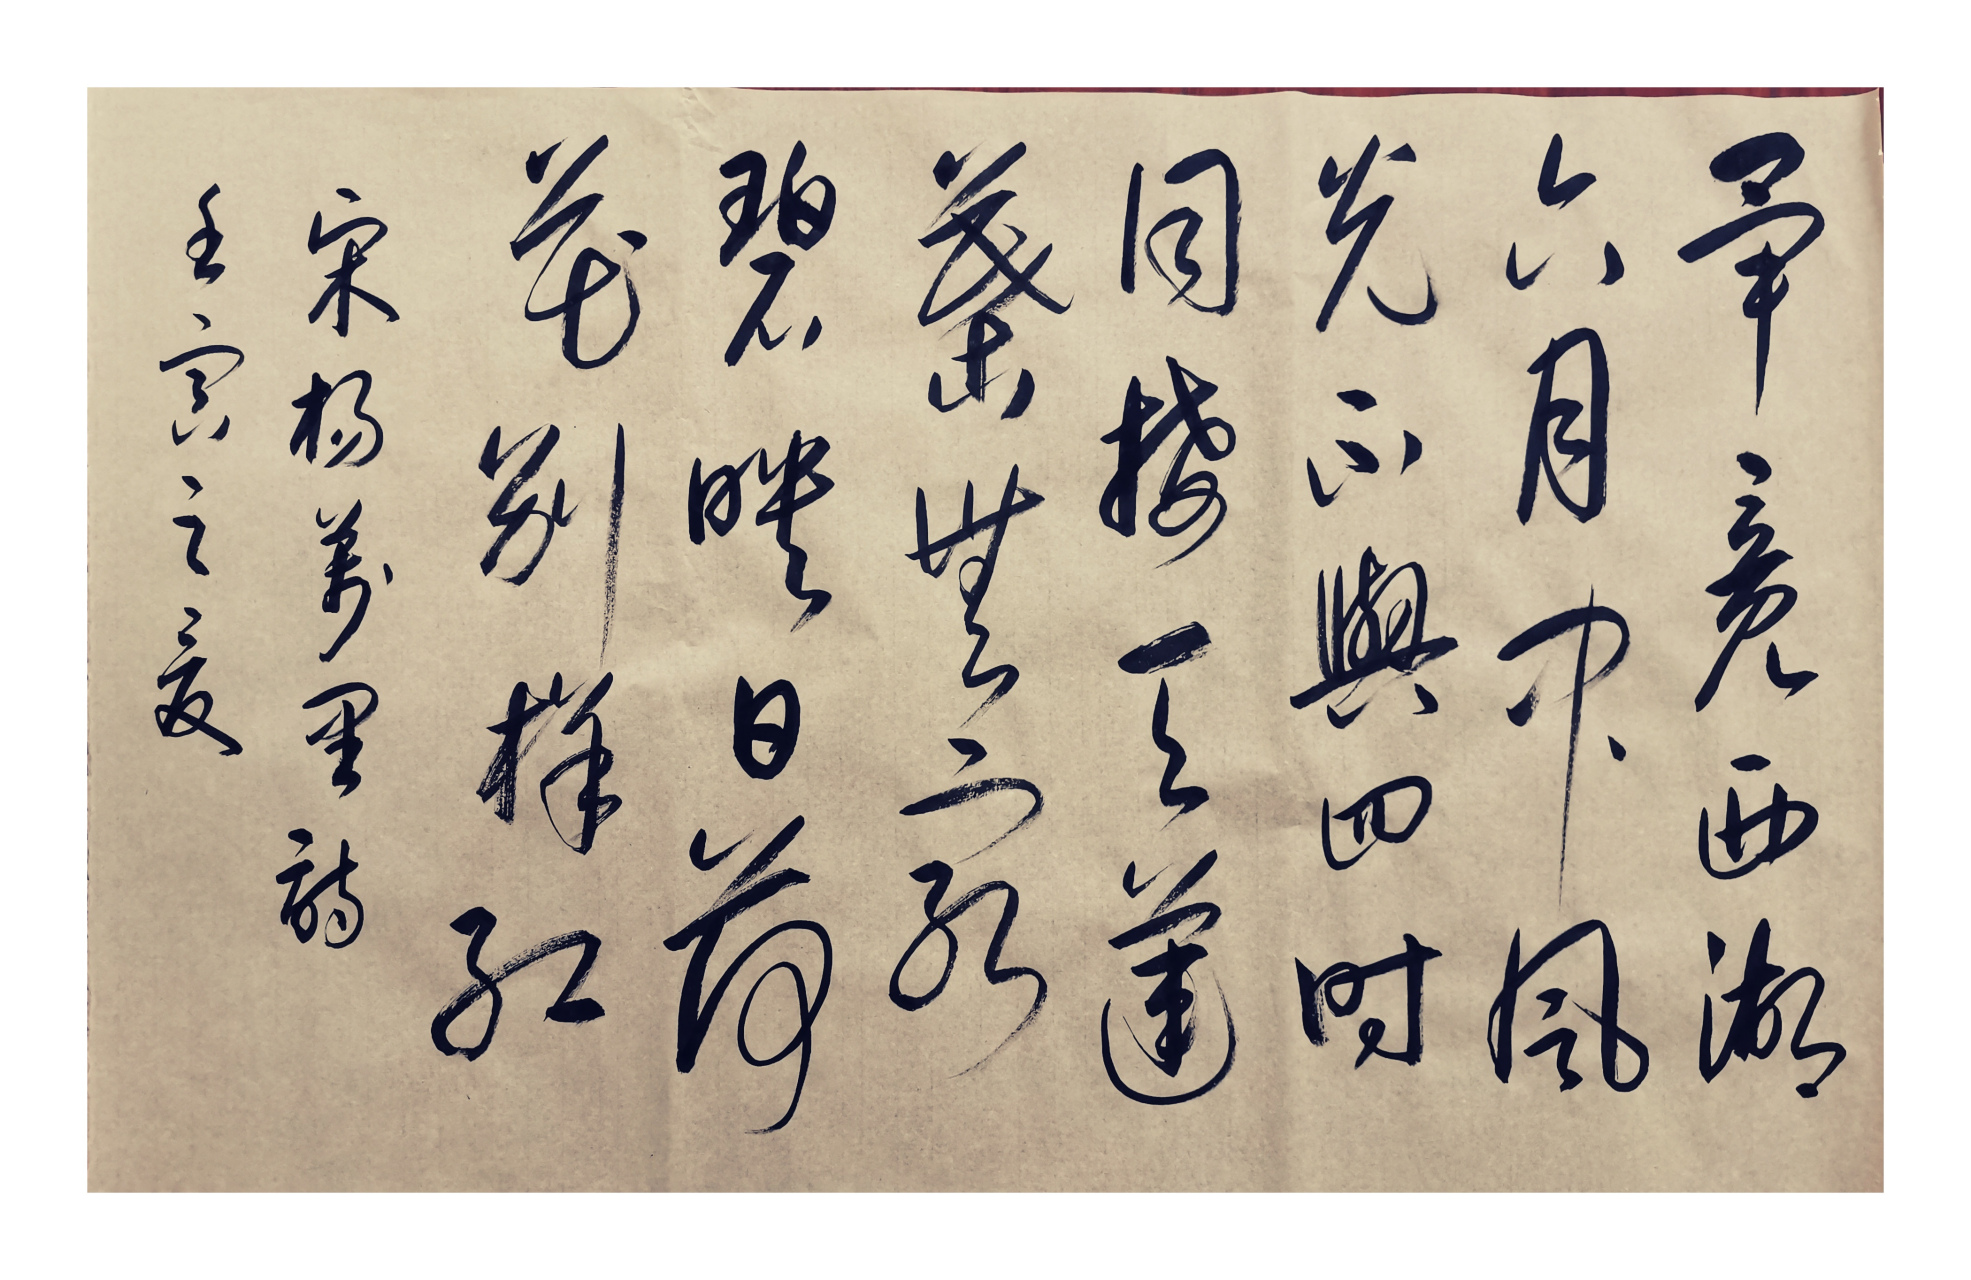 畢竟西湖
六月中風
光不與四時
同接天蓮
葉無窮
碧映日荷
花別樣紅
宋楊萬里詩
壬寅之夏